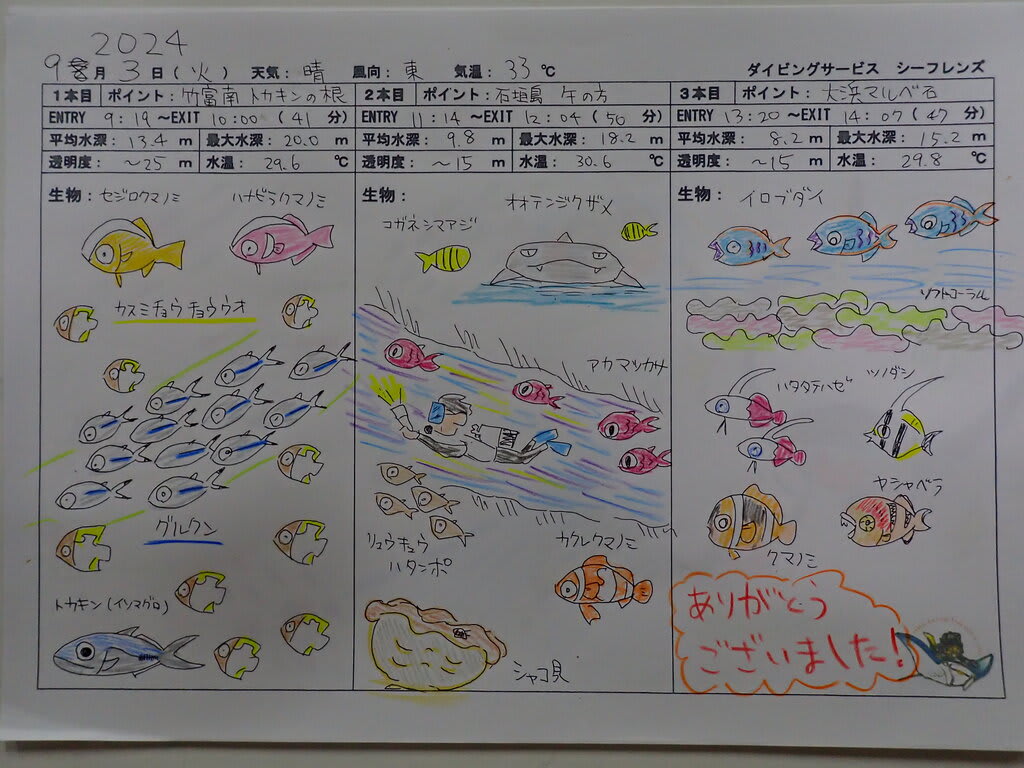 2024
9月3日(火) 天気:晴 風向:東 気温:33℃ ダイビングサービス シーフレンズ
1本目 ポイント:竹富南 トカキンの根
ENTRY 9:19~EXIT 10:00(41分)
平均水深:13.4m 最大水深:20.0m
透明度:~25m 水温:29.6℃
生物:セジロクマノミ ハナビラクマノミ
カスミチョウチョウウオ
グルクン
トカキン(イソマグロ)
2本目 ポイント:石垣島 午の方
ENTRY 11:14~EXIT 12:04(50分)
平均水深:9.8m 最大水深:18.2m
透明度:~15m 水温:30.6℃
生物:
オオテンジクザメ
コガネシマアジ
アカマツカサ
リュウキュウ
ハタンポ
カクレクマノミ
シャコ貝
3本目 ポイント:大浜マルベ石
ENTRY 13:20~EXIT 14:07(47分)
平均水深:8.2m 最大水深:15.2m
透明度:~15m 水温:29.8℃
生物:イロブダイ
ソフトコーラル
ハタタテハゼ ツノダシ
ヤシャベラ
クマノミ
ありがとう
ございました!